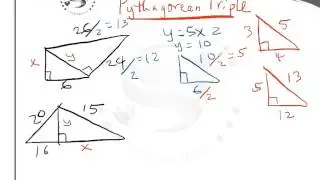 Pythagorean Triple
26/2 = 13
y = 5x2
y = 10
3
5
4
x
y
24/2 = 12
6
10/2 = 5
6/2
5
13
12
20
y
15
16
x